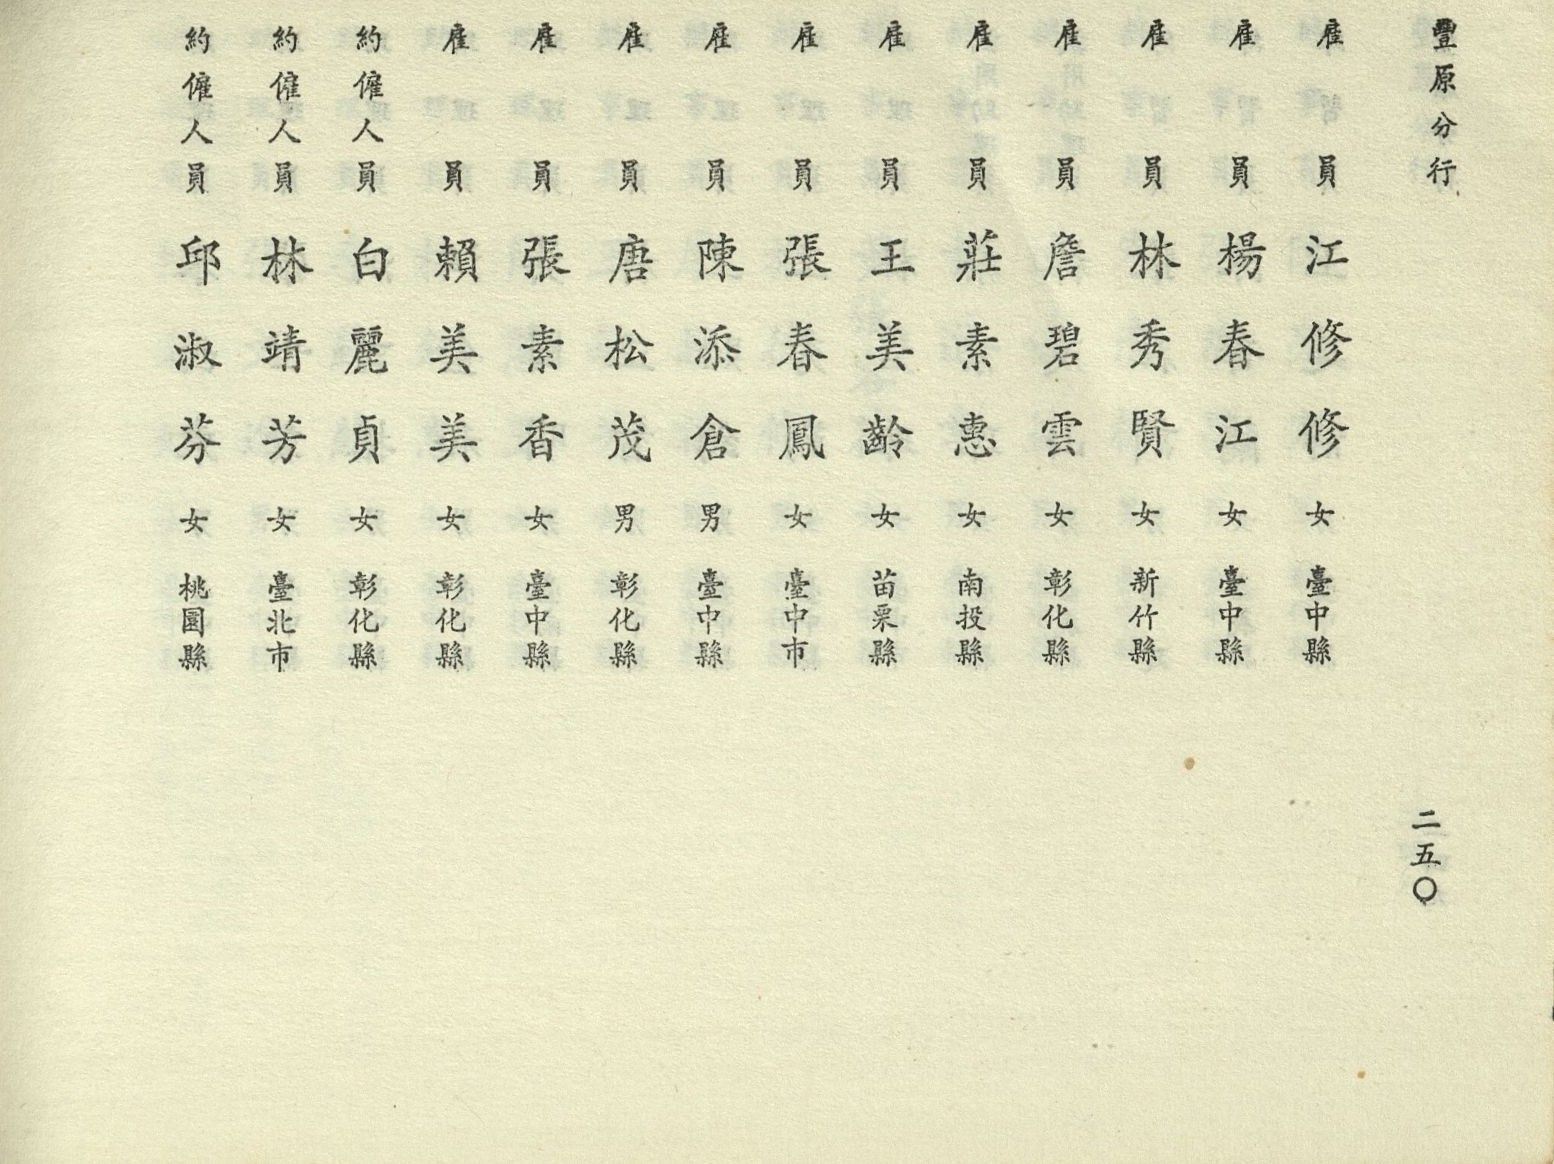 豐原分行
雇員 江修修 女 臺中縣
雇員 楊春江 女 臺中縣
雇員 林秀賢 女 新竹縣
雇員 詹碧雲 女 彰化縣
雇員 莊素惠 女 南投縣
雇員 王美齡 女 苗栗縣
雇員 張春鳳 女 臺中市
雇員 陳添倉 男 臺中縣
雇員 唐松茂 男 彰化縣
雇員 張素香 女 臺中縣
雇員 賴美美 女 彰化縣
約僱人員 白麗貞 女 彰化縣
約僱人員 林靖芳 女 臺北市
約僱人員 邱淑芬 女 桃園縣
二五〇